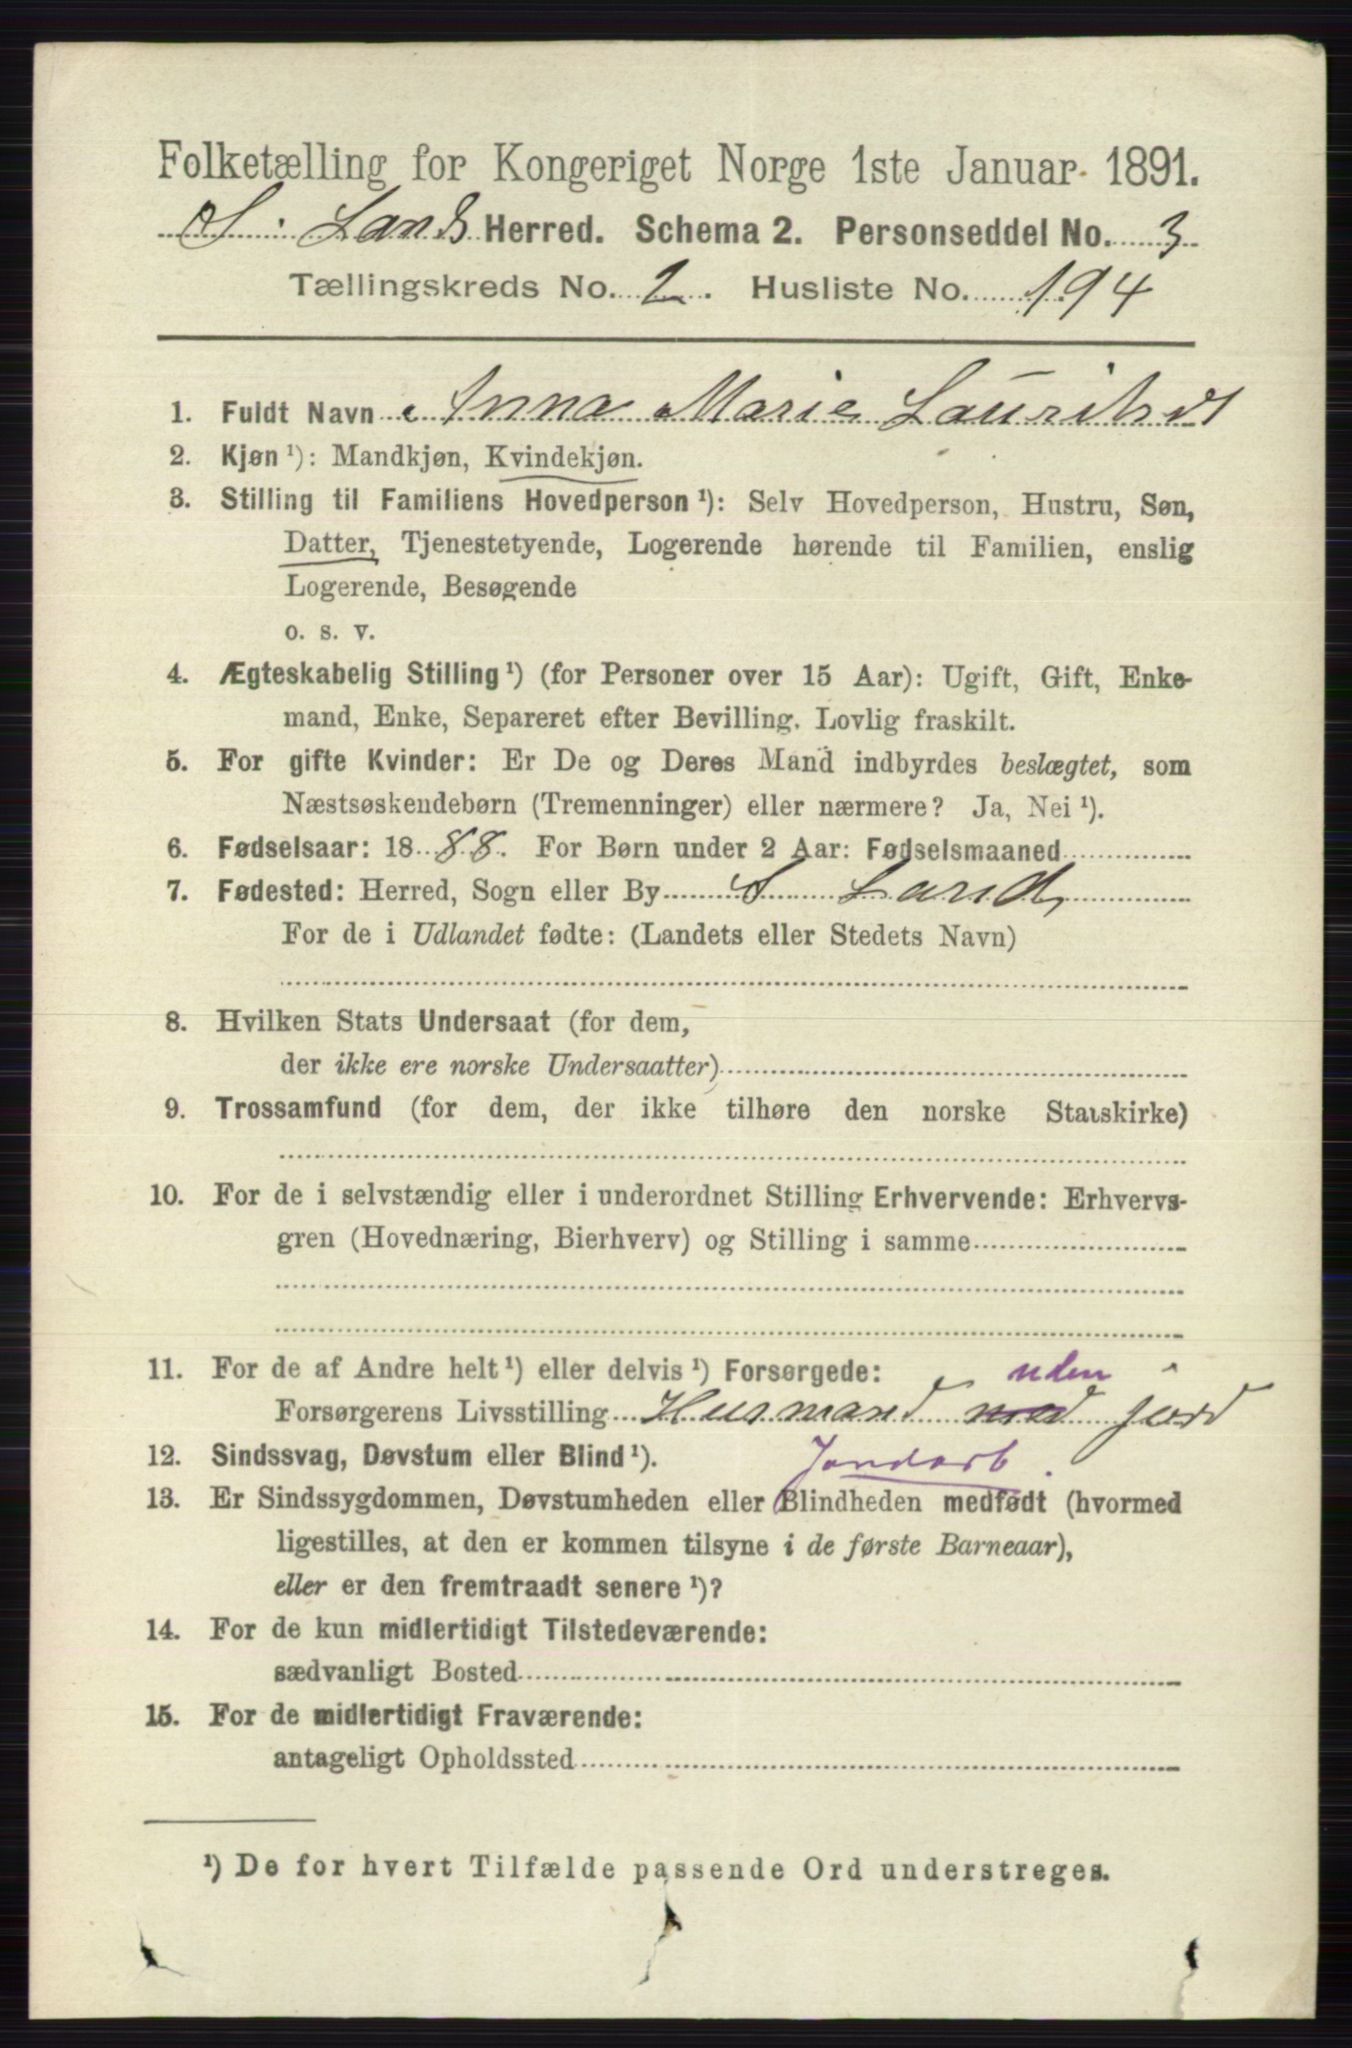 Folketælling for Kongeriget Norge 1ste Januar 1891.
S. Lands Herred. Schema 2. Personseddel No. 3
Tællingskreds No. 2. Husliste No. 194
1. Fuldt Navn Anna Marie Lauritsdt
2. Kjøn ¹): Mandkjøn, Kvindekjøn.
3. Stilling til Familiens Hovedperson ¹): Selv Hovedperson, Hustru, Søn,
Datter, Tjenestetyende, Logerende hørende til Familien, enslig
Logerende, Besøgende
o. s. v.
4. Ægteskabelig Stilling ¹) (for Personer over 15 Aar): Ugift, Gift, Enke-
mand, Enke, Separeret efter Bevilling. Lovlig fraskilt.
5. For gifte Kvinder: Er De og Deres Mand indbyrdes beslægtet, som
Næstsøskendebørn (Tremenninger) eller nærmere? Ja, Nei ¹).
6. Fødselsaar: 1888. For Børn under 2 Aar: Fødselsmaaned
7. Fødested: Herred, Sogn eller By S Land,
For de i Udlandet fødte: (Landets eller Stedets Navn)
8. Hvilken Stats Undersaat (for dem,
der ikke ere norske Undersaatter)
9. Trossamfund (for dem, der ikke tilhøre den norske Statskirke)
10. For de i selvstændig eller i underordnet Stilling Erhvervende: Erhvervs-
gren (Hovednæring, Bierhverv) og Stilling i samme
11. For de af Andre helt ¹) eller delvis ¹) Forsørgede: uden
Forsørgerens Livsstilling Husmand med jord
12. Sindssvag, Døvstum eller Blind ¹). Jordarb.
13. Er Sindssygdommen, Døvstumheden eller Blindheden medfødt (hvormed
ligestilles, at den er kommen tilsyne i de første Barneaar),
eller er den fremtraadt senere ¹)?
14. For de kun midlertidigt Tilstedeværende:
sædvanligt Bosted
15. For de midlertidigt Fraværende:
antageligt Opholdssted
¹) De for hvert Tilfælde passende Ord understreges.